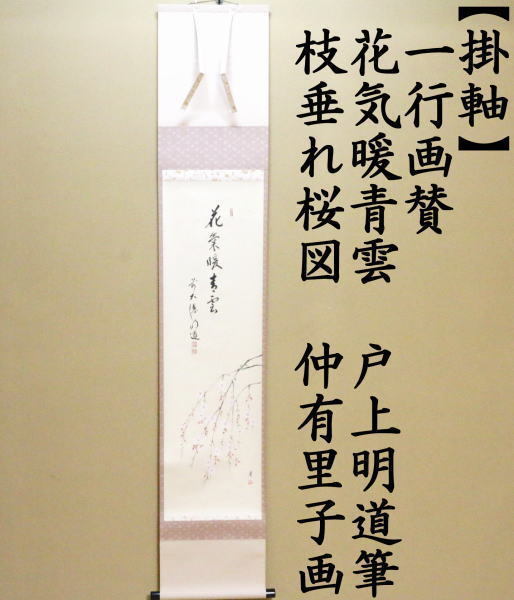 【掛軸】
一行画賛
花気暖青雲　戸上明道筆
枝垂れ桜図　仲有里子画
花氣暖青雲
前大徳明道